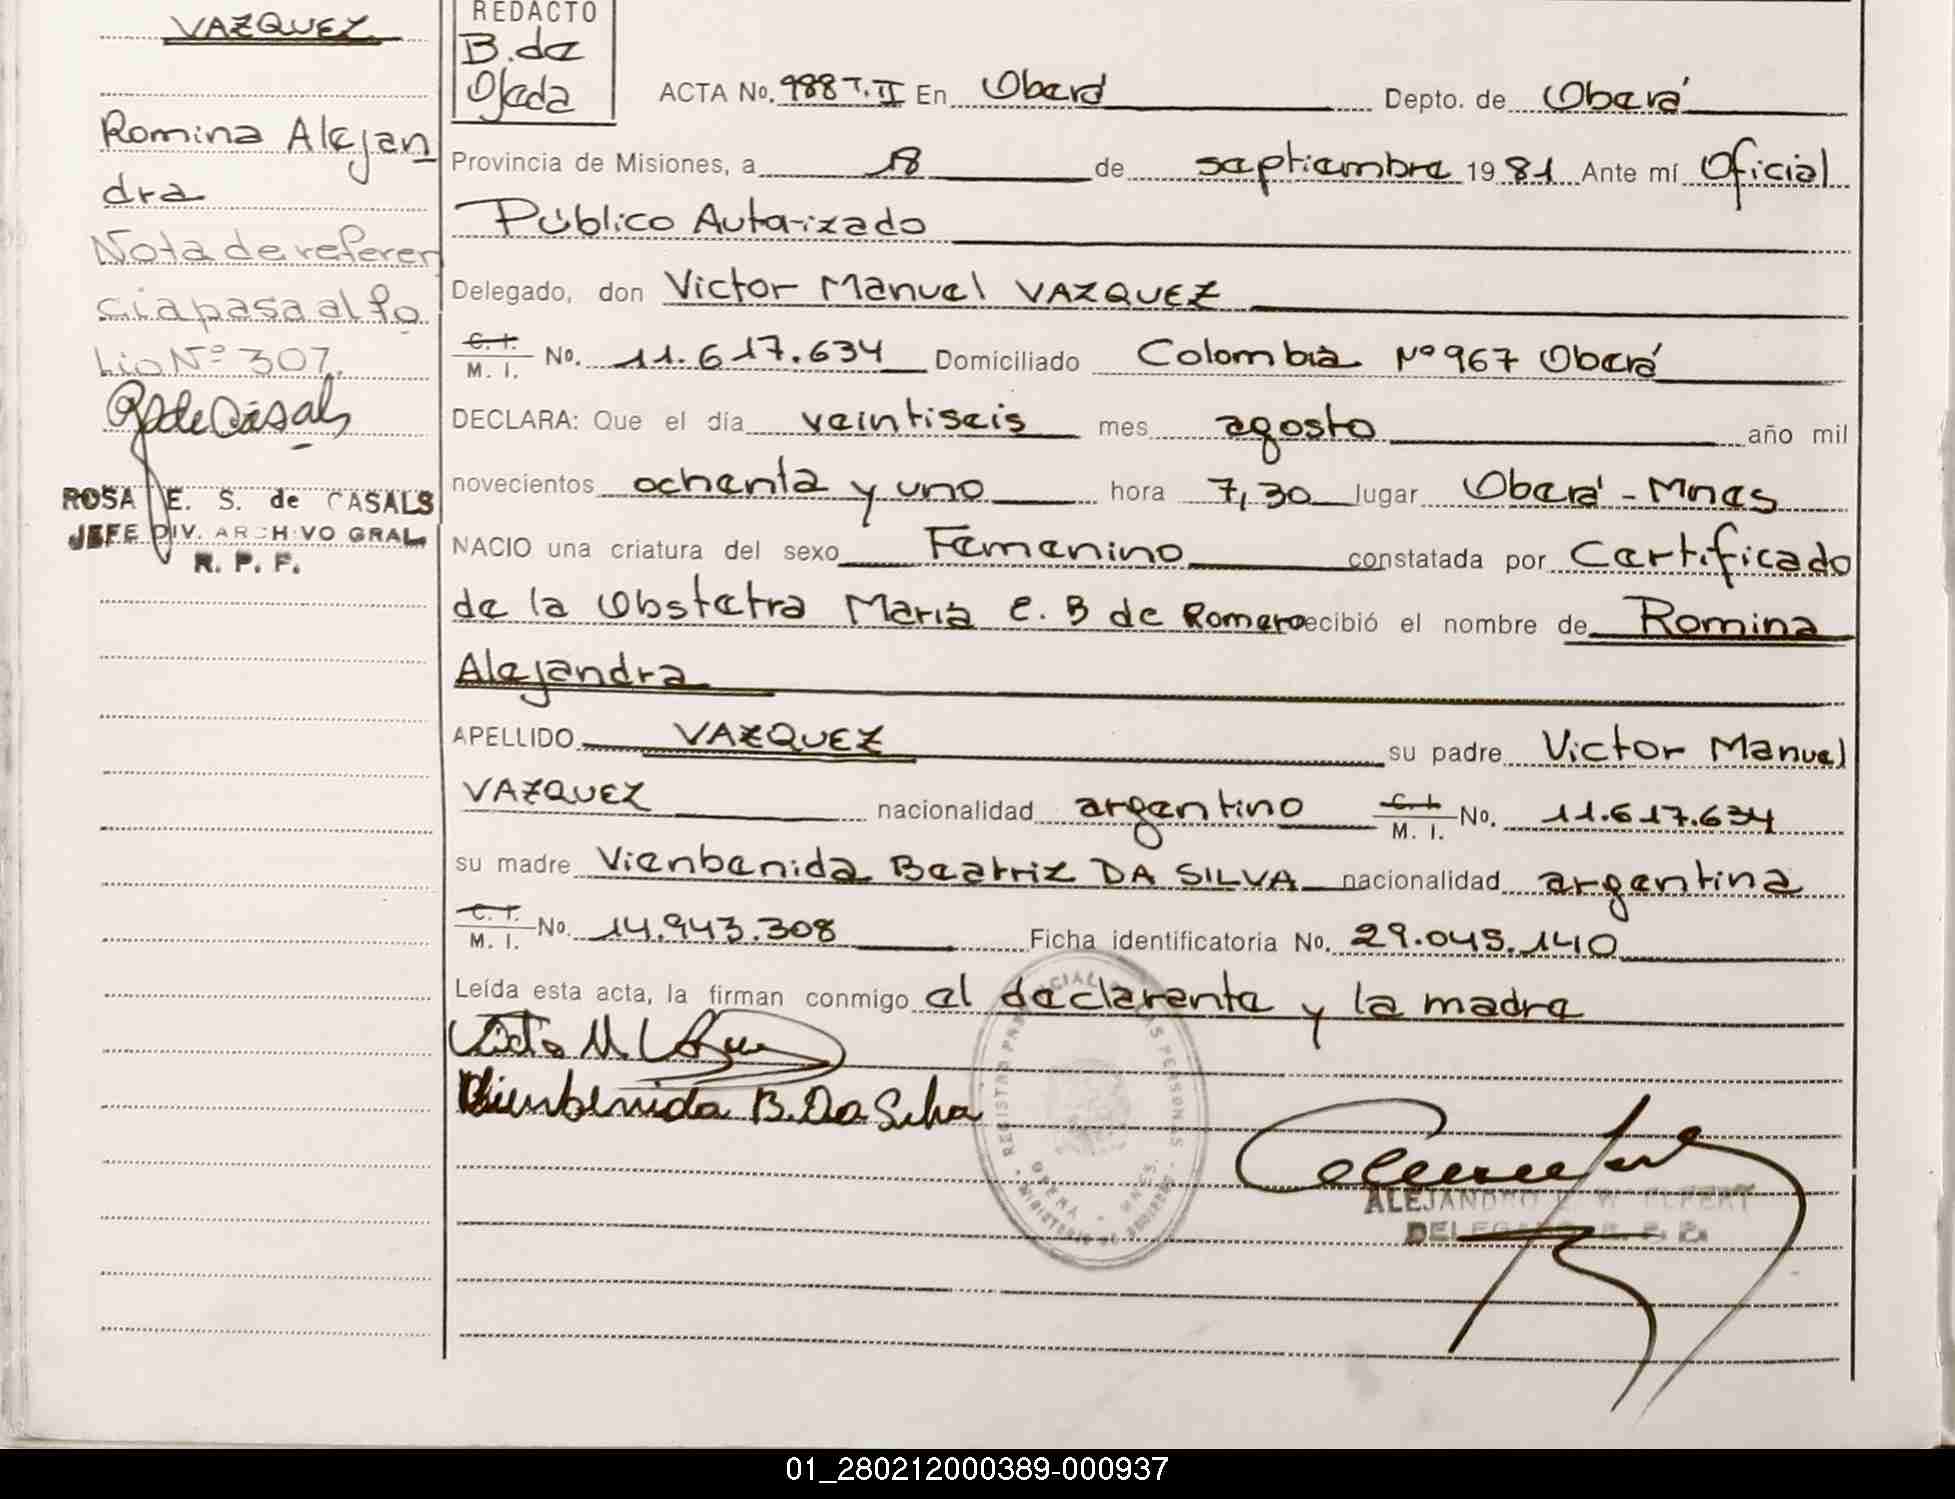 VAZQUEZ
Romina Alejan
dra
Nota de referen
cia pasa al fo
lio Nº 307.
ROSA E. S. de CASALS
JEFE DIV. ARCHIVO GRAL.
R. P. F.
REDACTO
B. de
Ojeda
ACTA No. 988 T. II En Oberá Depto. de Oberá
Provincia de Misiones, a 18 de septiembre 19 81 Ante mí Oficial
Público Autorizado
Delegado, don Victor Manuel VAZQUEZ
C. I.
M. I. No. 11.617.634 Domiciliado Colombia Nº 967 Oberá
DECLARA: Que el día veintiseis mes agosto año mil
novecientos ochenta y uno hora 7,30 lugar Oberá - Mnes
NACIO una criatura del sexo Femenino constatada por Certificado
de la Obstetra María E. B de Romero recibió el nombre de Romina
Alejandra
APELLIDO VAZQUEZ su padre Victor Manuel
VAZQUEZ nacionalidad argentino C. I. M. I. No. 11.617.634
su madre Vienbenida Beatriz DA SILVA nacionalidad argentina
C. I.
M. I. No. 14.943.308 Ficha identificatoria No. 29.045.140
Leída esta acta, la firman conmigo el declarante y la madre
Vienbenida B. Da Silva
REGISTRO PROVINCIAL DE LAS PERSONAS
OBERA - MNES.
MINISTERIO DE GOBIERNO
ALEJANDRO
DELEGADO
01_280212000389-000937